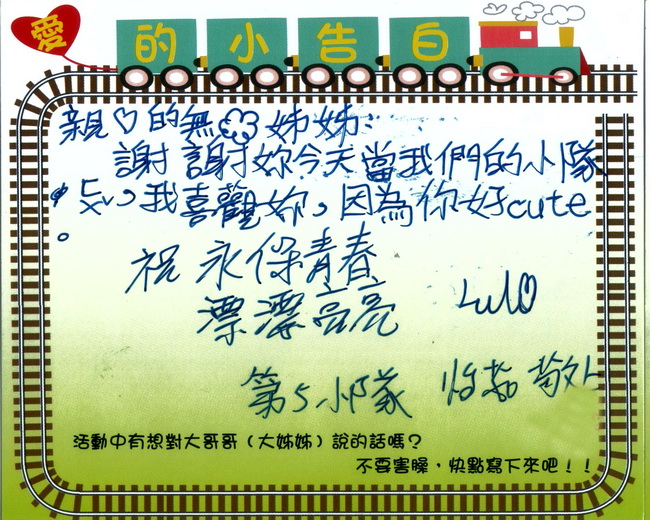 愛的小告白
親♡的無 姊姊：
謝謝妳今天當我們的小隊
長，我喜觀妳。因為你好cute
。
祝 永保青春
漂漂亮亮
Lulu
第5小隊 怡 敬上
活動中有想對大哥哥（大姊姊）說的話嗎？
不要害臊，快點寫下來吧！！